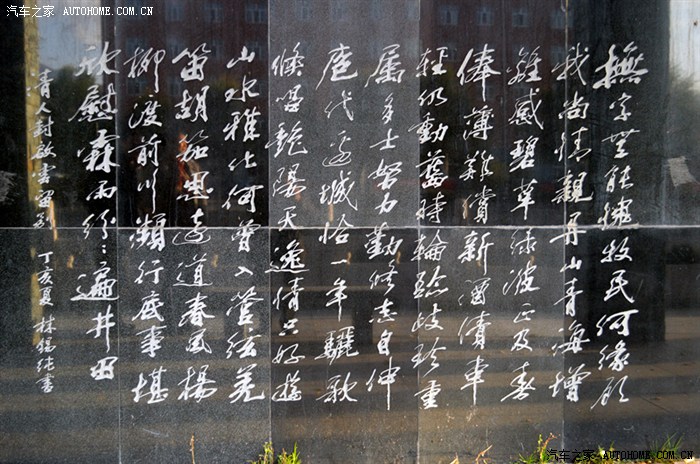 汽车之家 AUTOHOME.COM.CN
撫字無能愧牧民何缘顾
我尚情親丹山青海增
離感碧草绿波正及春
俸薄難償新酒債車
輕仍動舊時輪臨歧珍重
属多士努力勤修志自伸
庖代邊城恰一年驪歌
倏唱艳陽天逸情只好携
山水雅化何曾入管弦羌
笛胡笳思遠道春風楊
柳渡前川瀕行底事堪
欣慰霖雨纷纷遍井田
清人封啟雲留别 丁亥夏 林錫純書
汽车之家 AUTOHOME.COM.CN